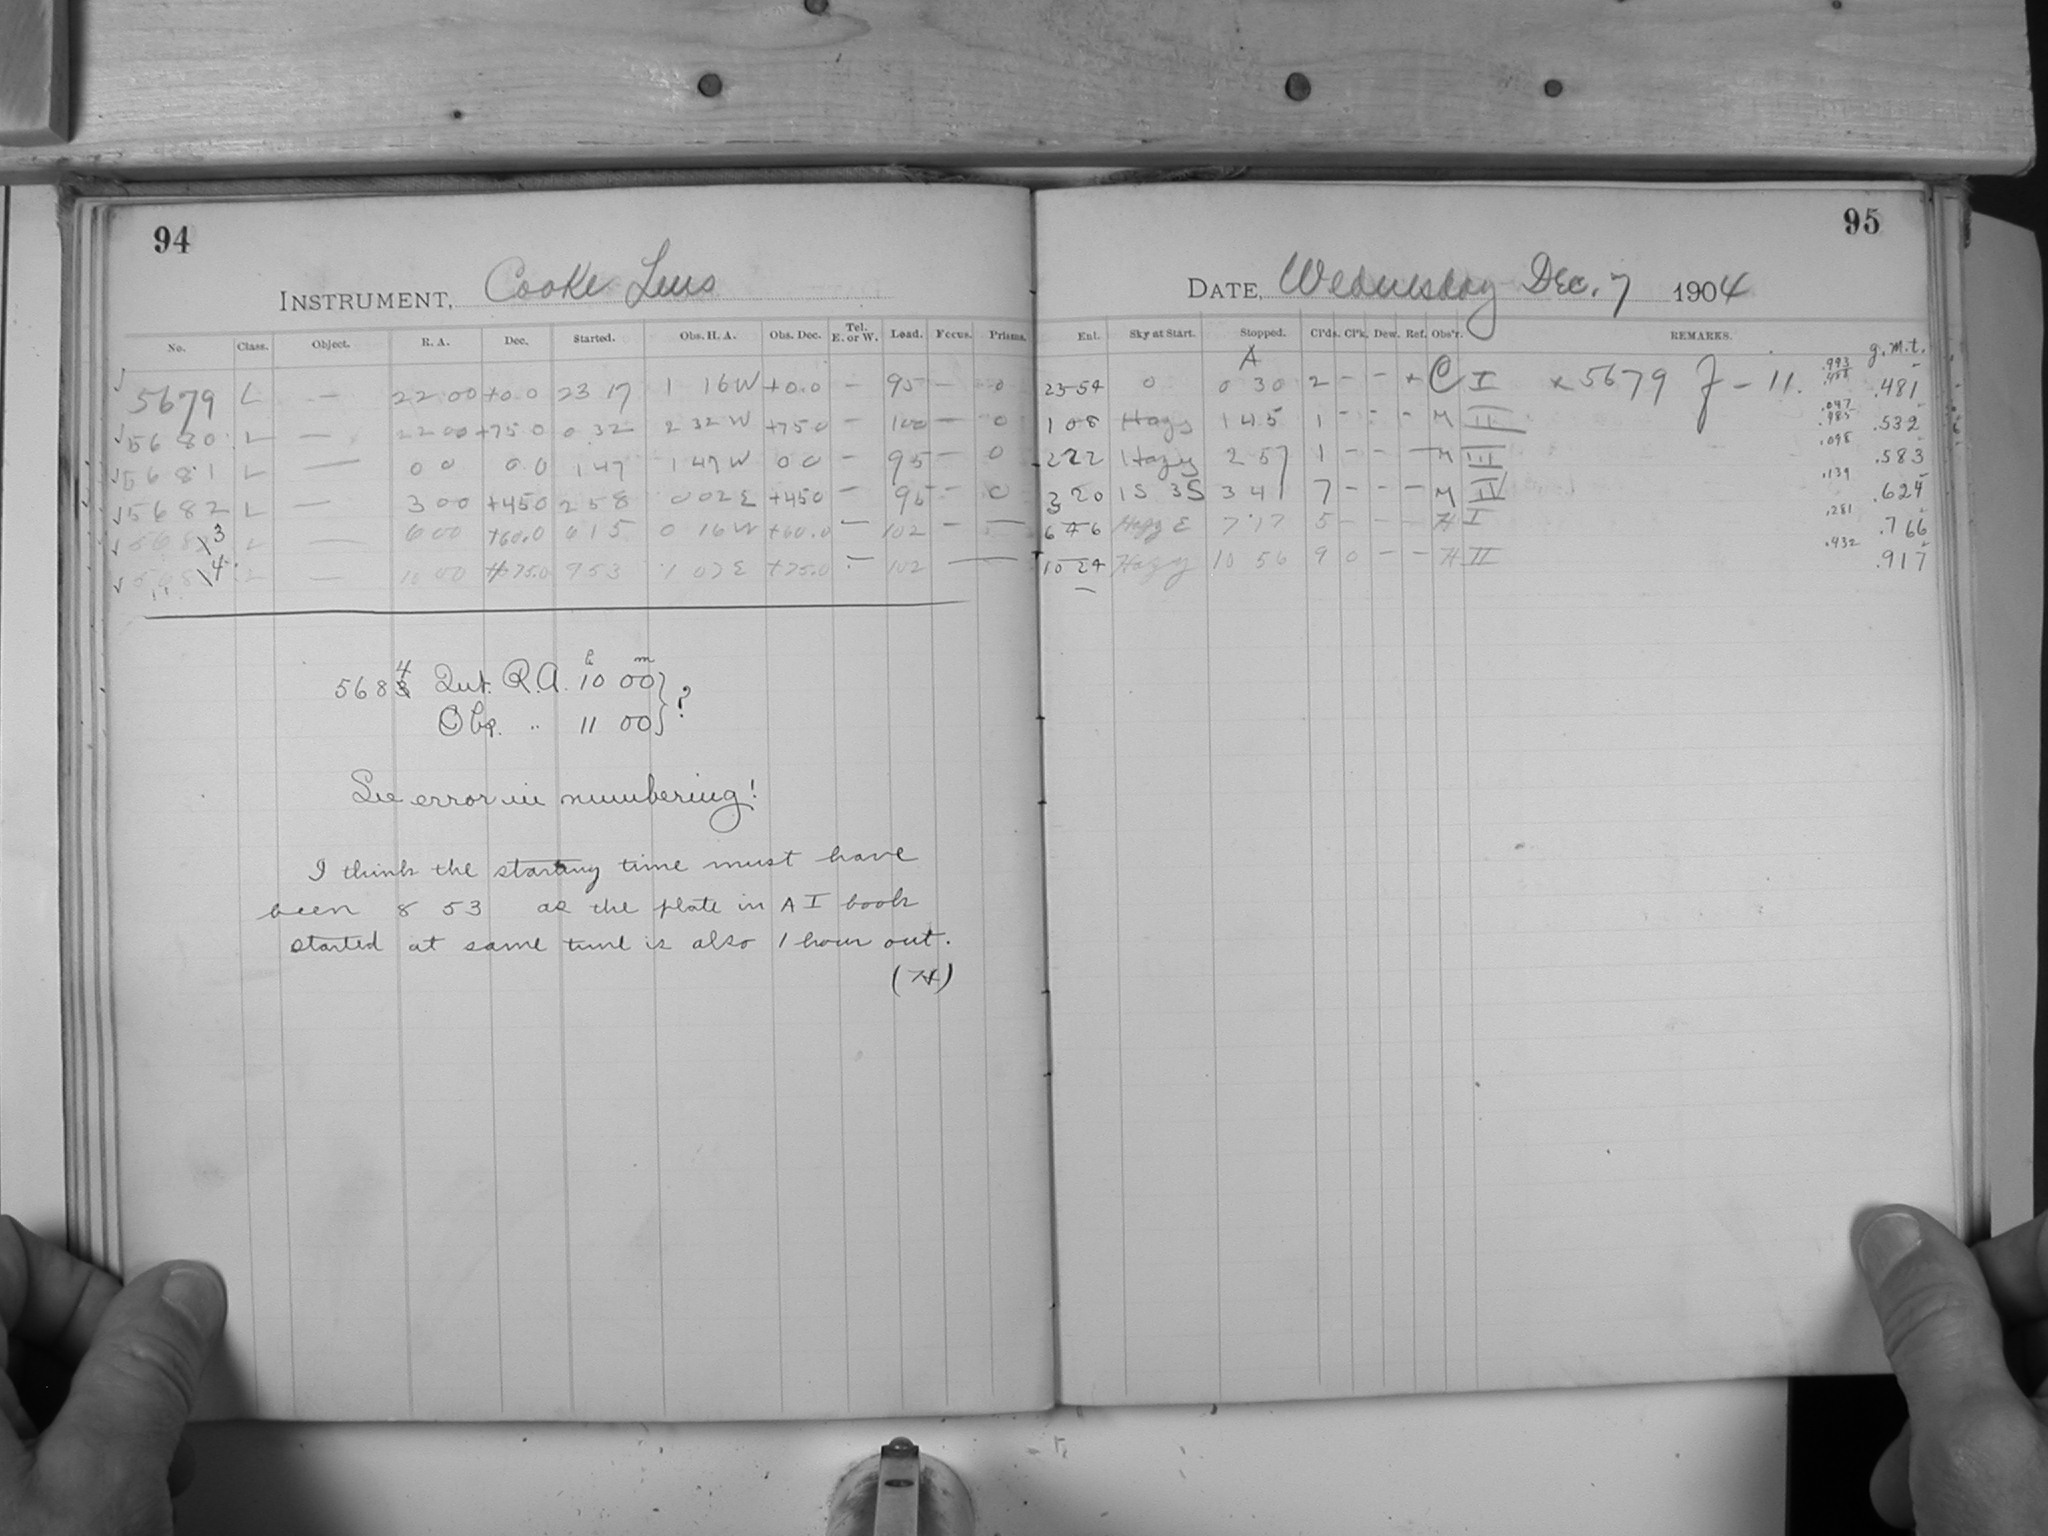 94
INSTRUMENT, Cooke Lens
No. Class. Object. R. A. Dec. Started. Obs. H. A. Obs. Dec. Tel. E. or W. Load. Focus. Prisms.
5679 L — 22 00 +0.0 23 17 1 16W +0.0 — 95 — 0
5680 L — 22 00 +75 0 0 32 2 32 W +75 0 — 100 — 0
5681 L — 0 0 0.0 1 47 1 47 W 0 0 — 95 — 0
5682 L — 3 00 +450 2 58 0 02 E +450 — 95 — 0
5683 L — 6 00 +60.0 6 15 0 16W +60.0 — 102 — —
5684 L — 10 00 +75.0 9 53 1 07 E +75.0 — 102 —
5684 Int. R.A. 10 h 00 m } ?
Obs. " 11 00
See error in numbering!
I think the starting time must have
been 8 53 as the plate in A I book
started at same time is also 1 hour out.
(H)
95
DATE, Wednesday Dec. 7 1904
Enl. Sky at Start. Stopped. Cl'ds. Cl'k. Dew. Ref. Obs'r. REMARKS. g.m.t.
A
23 54 0 0 30 2 – – + C I × 5679 J – 11. .993 .481
1 08 Hazy 1 45 1 – – – M II .047 .985 .532
2 22 Hazy 2 57 1 – – — M III .098 .583
3 20 1S 3S 3 41 7 – – – M IV .139 .624
6 46 Hazy E 7 17 5 – – – H I .281 .766
10 24 Hazy 10 56 9 0 – – H II .932 .917